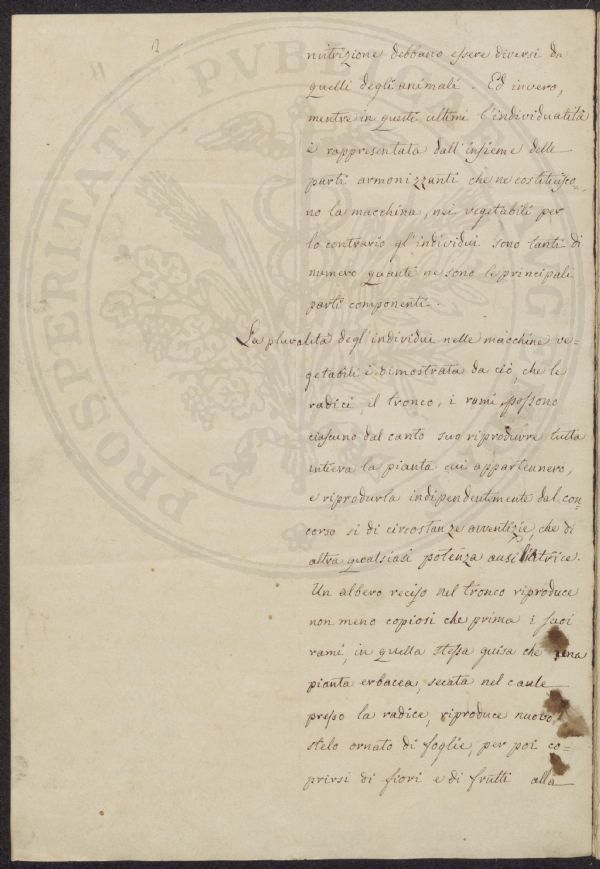 nutrizione debbano essere diversi da
quelli degli animali. Ed invero,
mentre in questi ultimi l'individualità
è rappresentata dall'insieme delle
parti armonizzanti che ne costituisco-
no la macchina, nei vegetabili per
lo contrario gl'individui sono tanti di
numero quante ne sono le principali
parti componenti.
La pluralità degl'individui nelle macchine ve=
getabili è dimostrata da ciò, che le
radici, il tronco, i rami possono
ciascuno dal canto suo riprodurre tutta
intiera la pianta cui appartennero,
e riprodurla indipendentemente dal con-
corso sì di circostanze avventizie, che di
altra qualsiasi potenza ausiliatrice.
Un albero reciso nel tronco riproduce
non meno copiosi che prima i suoi
rami, in quella stessa guisa che una
pianta erbacea, secata nel caule
presso la radice, riproduce nuovo
stelo ornato di foglie, per poi co=
prirsi di fiori e di frutti alla
PROSPERITATI PVBLICAE